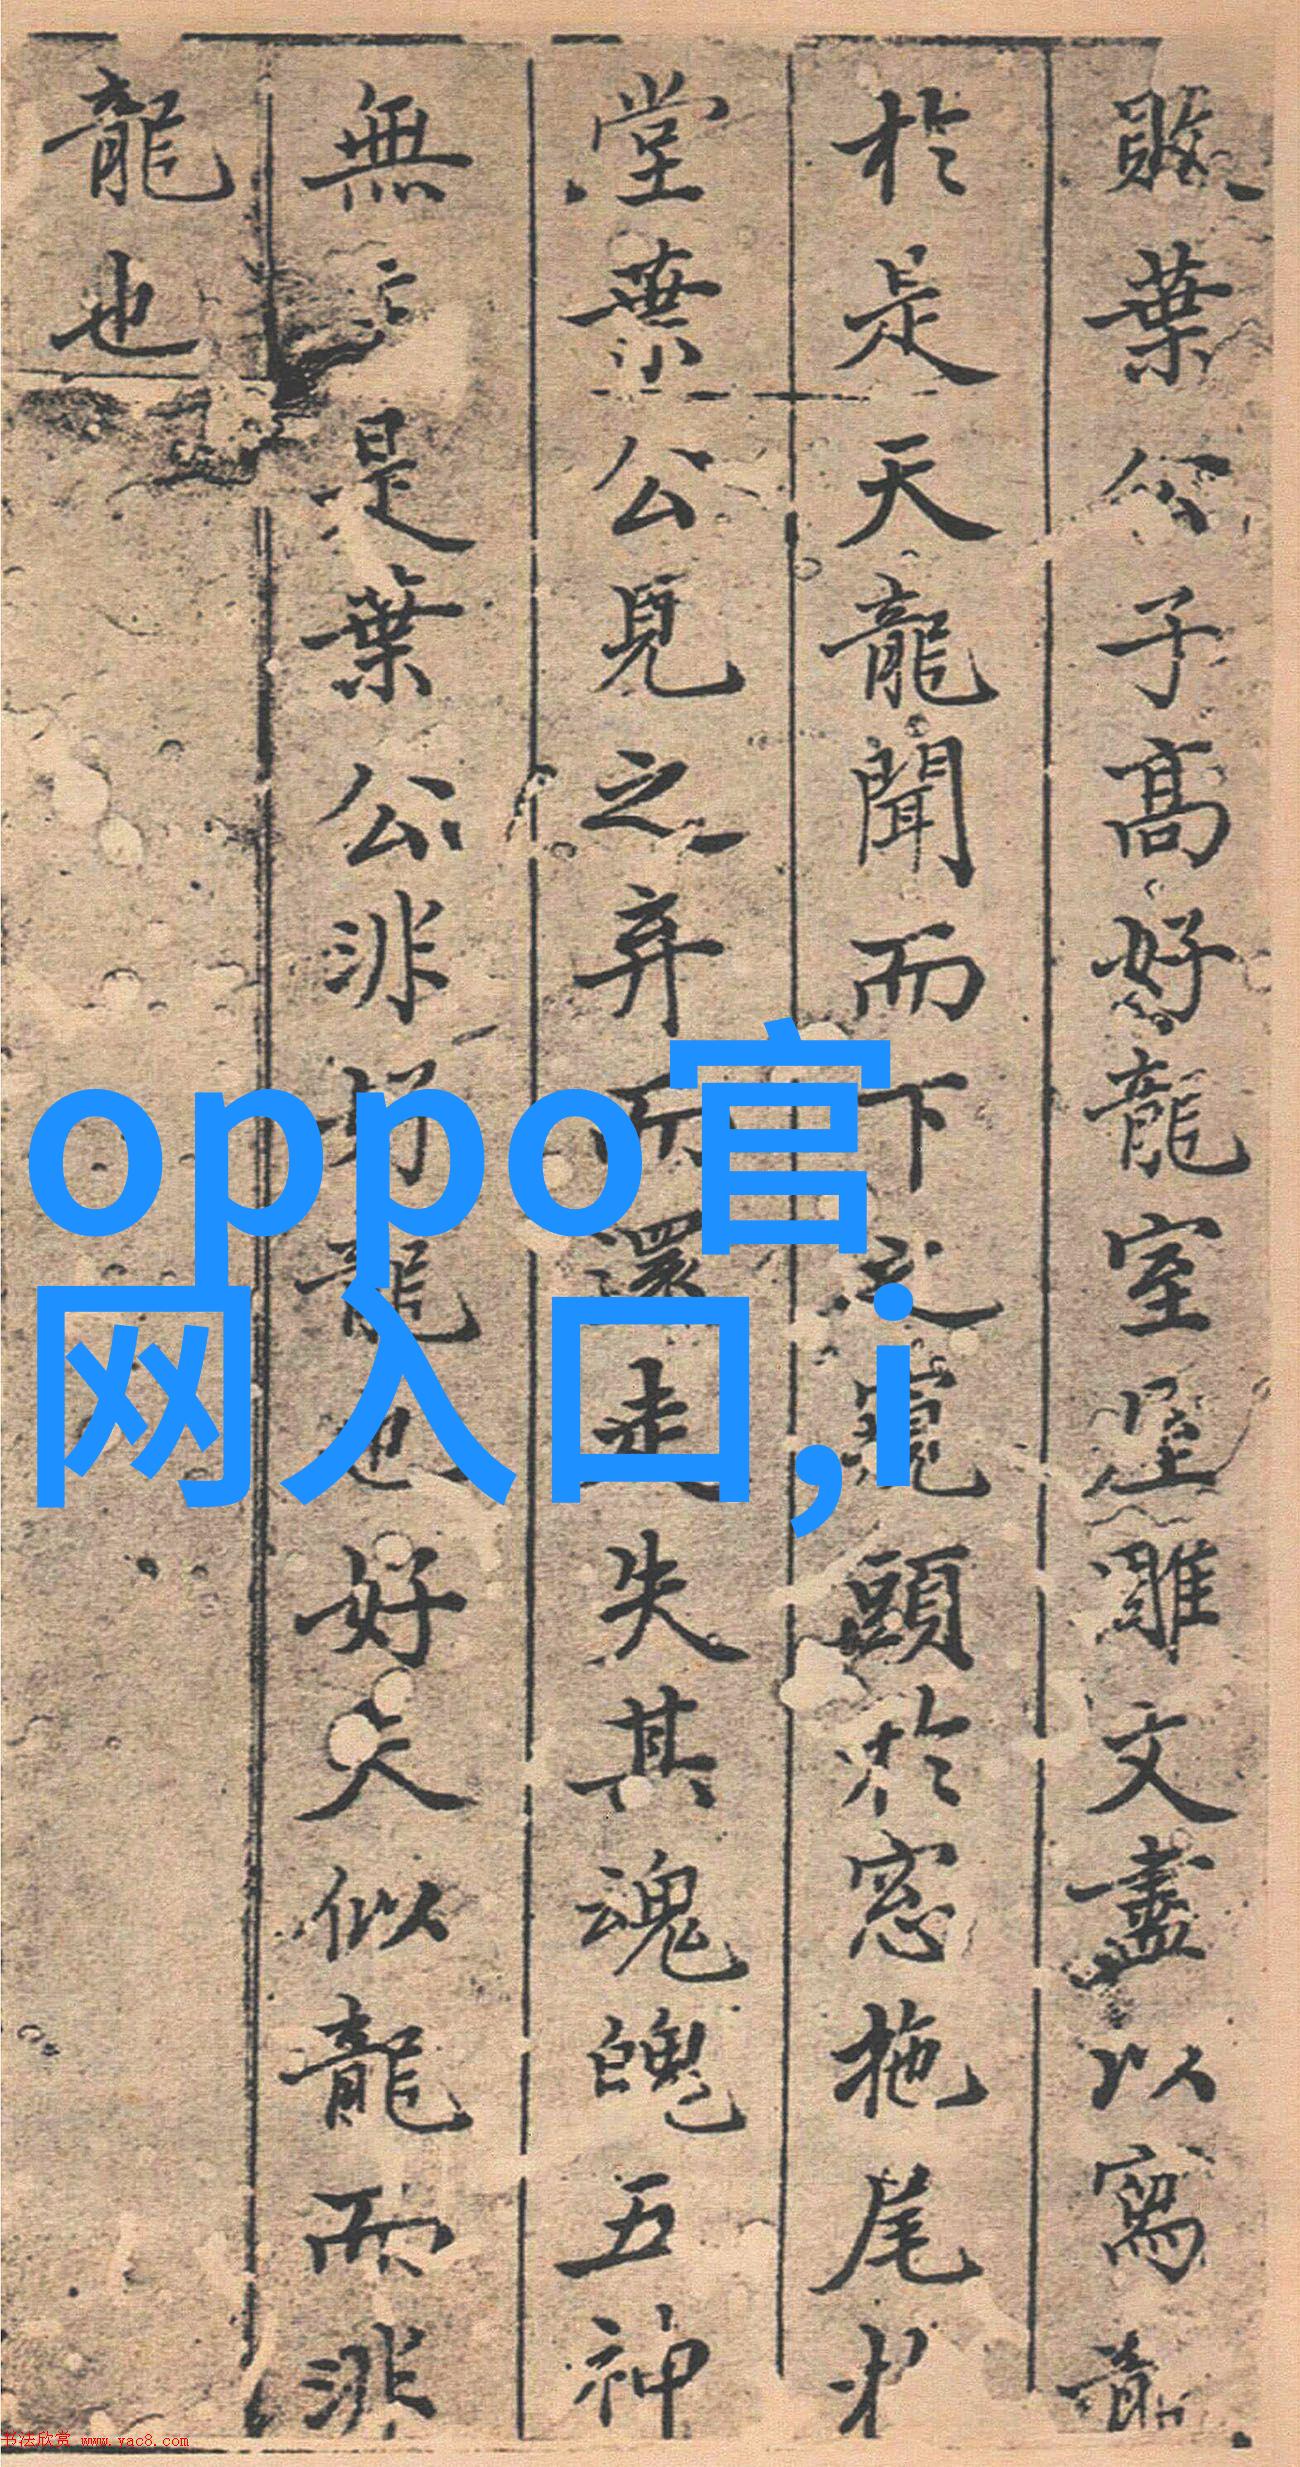 敗葉公子高好龍室屋雕文盡以寫龍
於是天龍聞而下之窺頭於窓拖尾於
堂葉公見之弃而還走失其魂魄五神
無主是葉公非好龍也好夫似龍而非
龍也
oppo官
网入口,i
书法欣赏 www.yac8.com